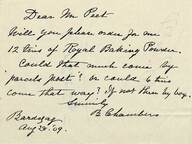 Dear Mr Peet
Will you please order for me
12 tins of Royal Baking Powder.
Could that much come by
"parcels post"? or could 6 tins
come that way? If not then by boy.
Sincerely
B Chambers
Barengay
Aug 20 '09.